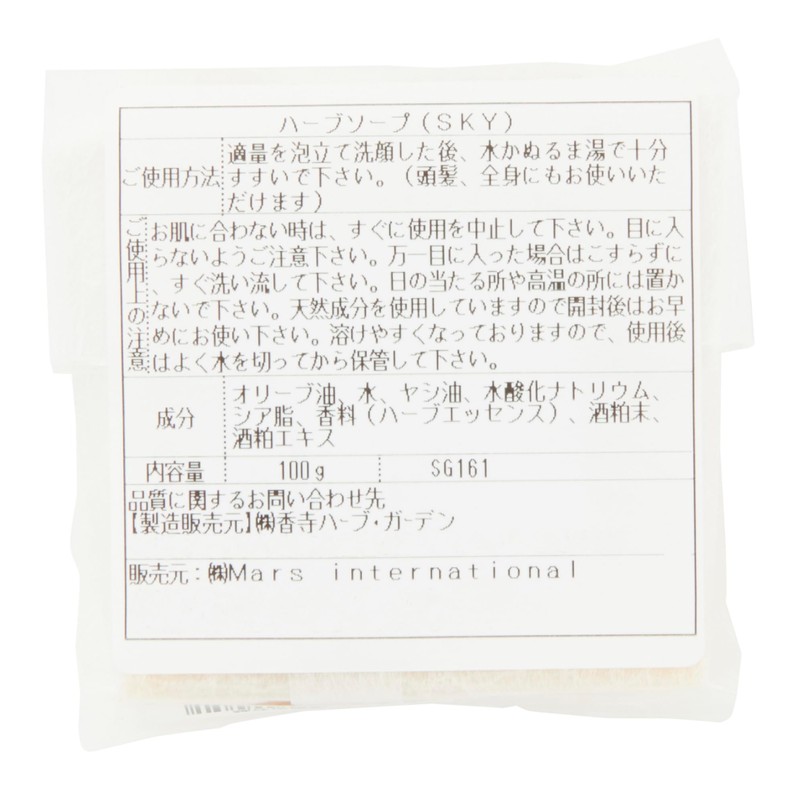 ハーブソープ(SKY)
ご使用方法
適量を泡立て洗顔した後、水かぬるま湯で十分
すすいで下さい。(頭髪、全身にもお使いいた
だけます)
ご使用上の注意
お肌に合わない時は、すぐに使用を中止して下さい。目に入
らないようご注意下さい。万一目に入った場合はこすらずに
、すぐ洗い流して下さい。日の当たる所や高温の所には置か
ないで下さい。天然成分を使用していますので開封後はお早
めにお使い下さい。溶けやすくなっておりますので、使用後
はよく水を切ってから保管して下さい。
成分
オリーブ油、水、ヤシ油、水酸化ナトリウム、
シア脂、香料(ハーブエッセンス)、酒粕末、
酒粕エキス
内容量 100g SG161
品質に関するお問い合わせ先
【製造販売元】㈱香寺ハーブ・ガーデン
販売元:㈱Mars international